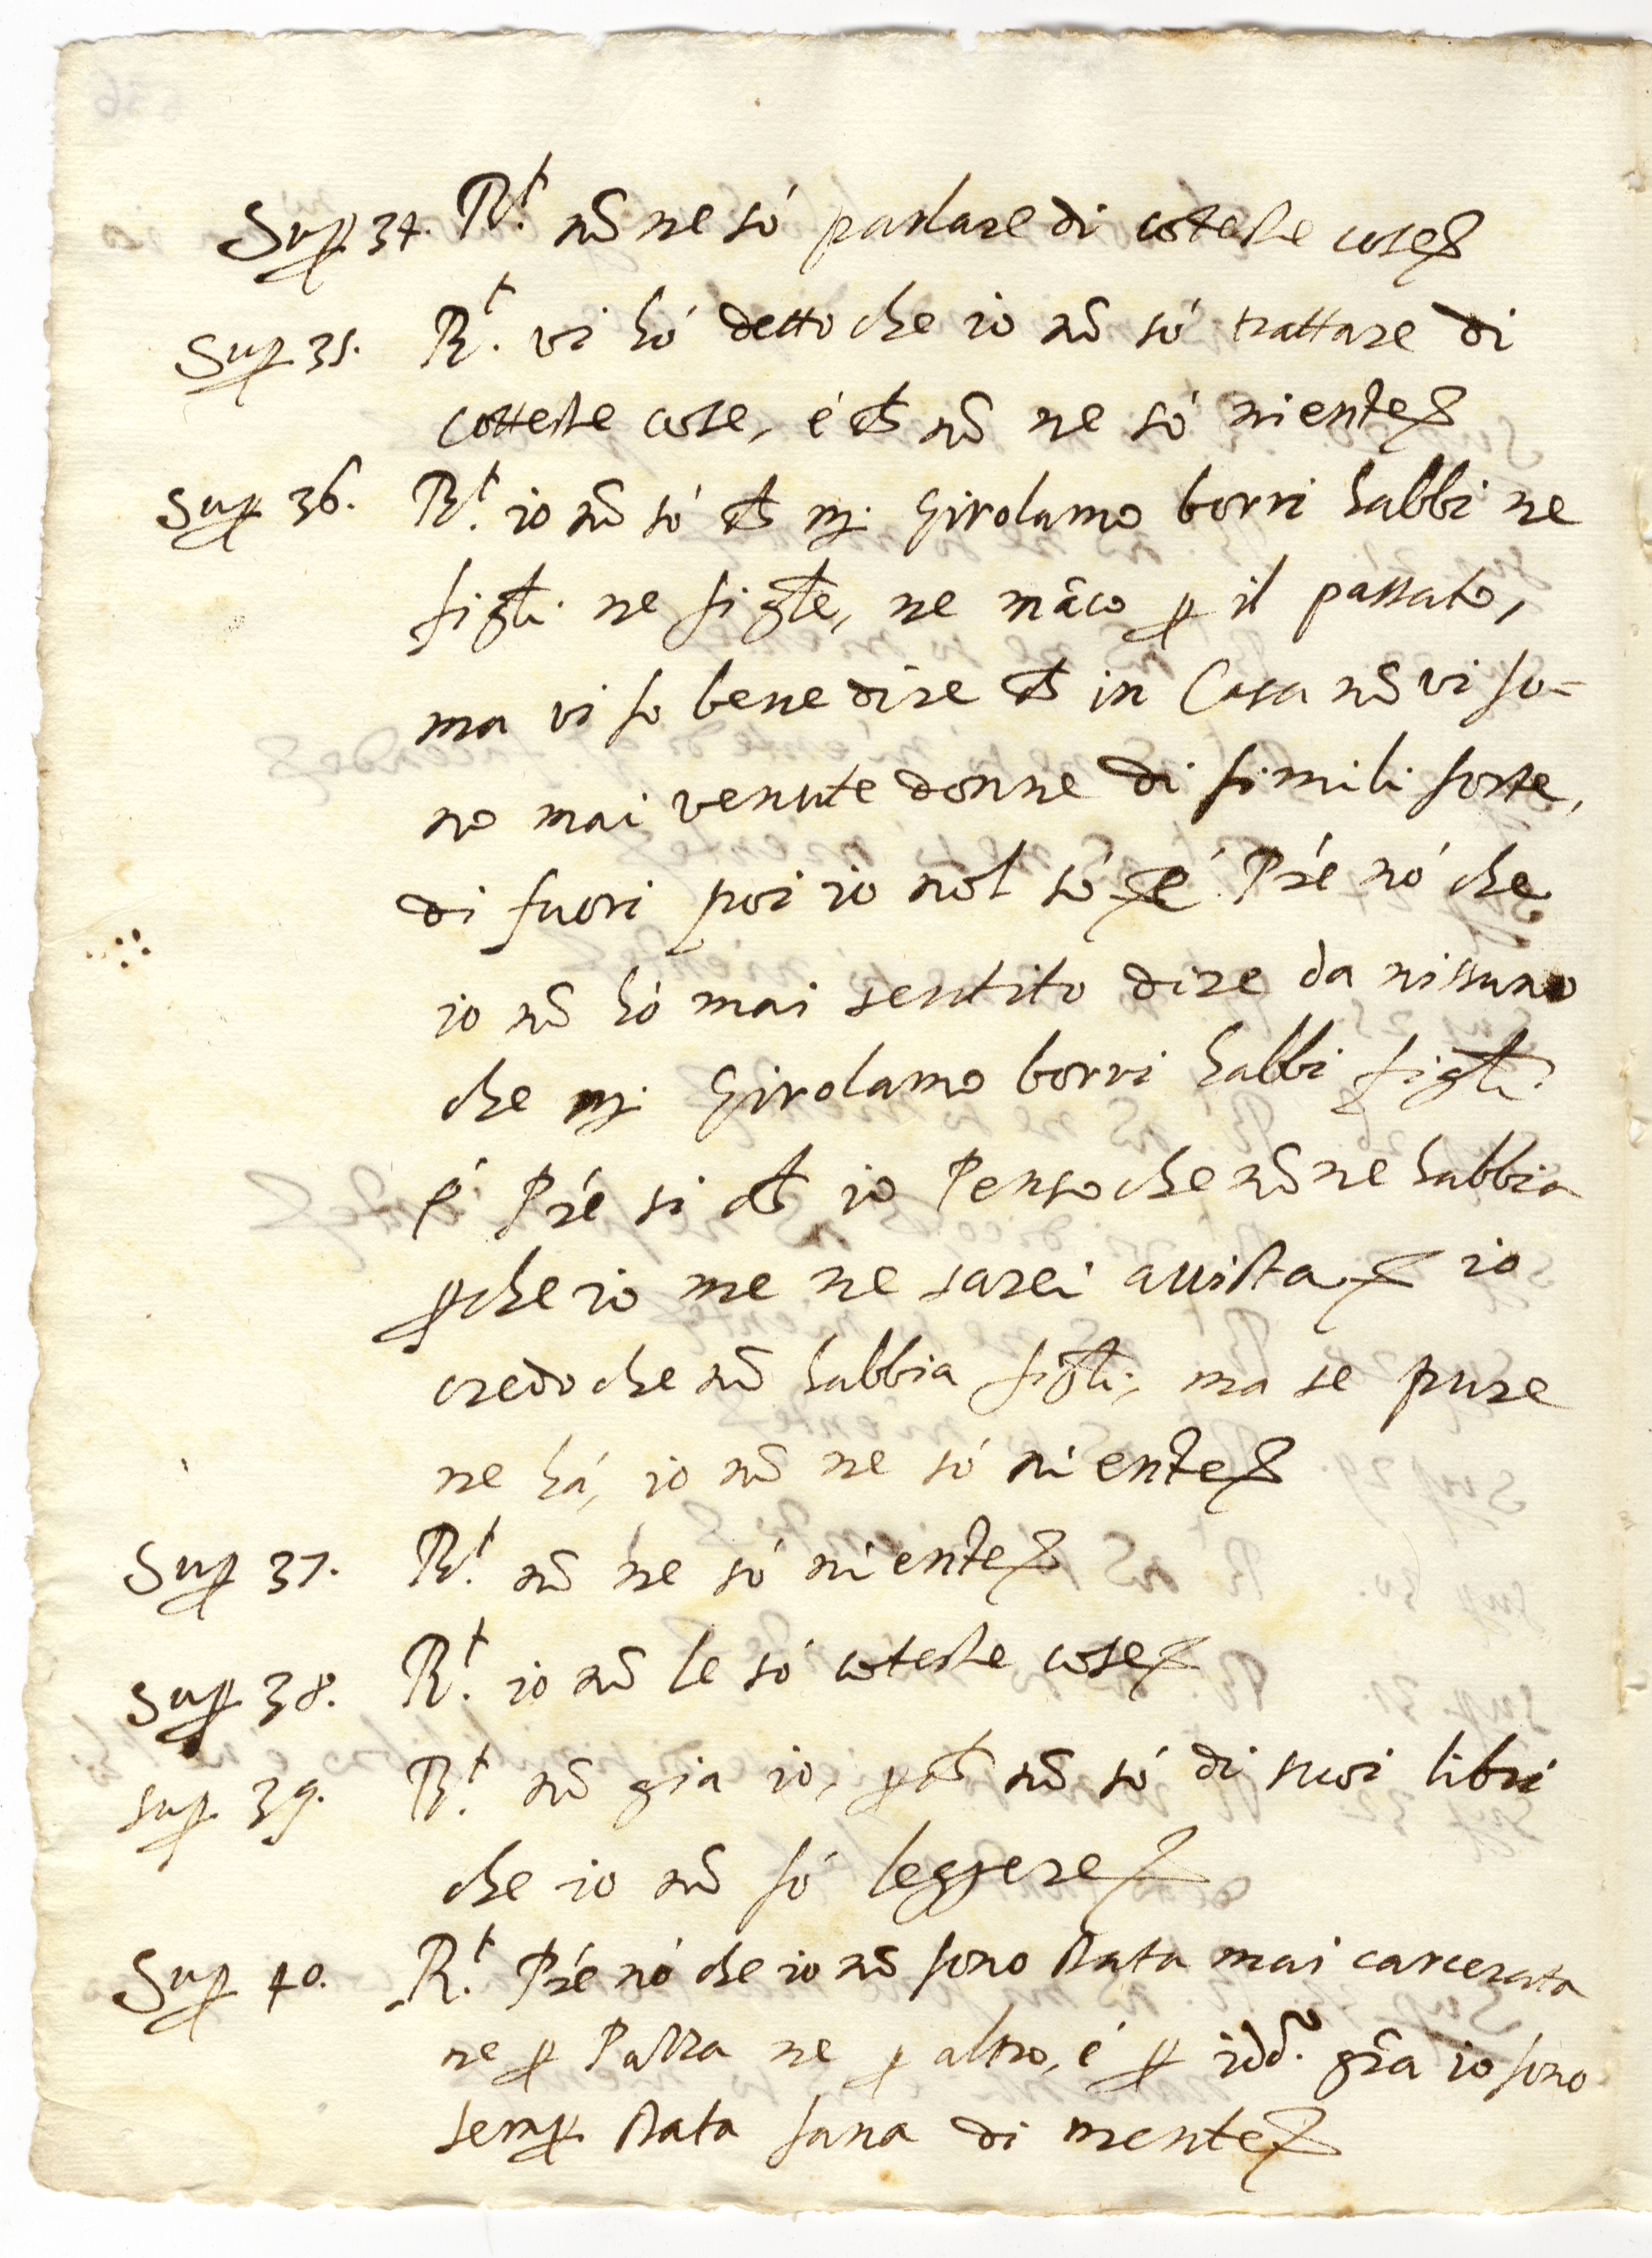 Sup 34. Rt. nõ ne só parlare di coteste cose
Sup 35. Rt. vi hó detto che io nõ só trattare di
cotteste cose, é ch nõ ne só niente
Sup 36. Rt. io nõ só ch mr. Girolamo borri habbi ne
figli ne figle, ne mãco p il passato,
ma vi so bene dire ch in Casa nõ vi so=
no mai venute donne di simili sorte,
di fuori poi io nol só é Pré nó che
io nõ hó mai sentito dire da nissuno
che mr. Girolamo borri habbi figli
é Pré si ch io Penso che nõ ne habbia
pche io me ne sarei avvista io
credo che nõ habbia figli, ma se pure
ne há, io nõ ne só niente
Sup 37. Rt. nõ ne só niente
Sup 38. Rt. io nõ le só coteste cose
Sup. 39. Rt. nõ gia io, pch nõ só di suoi libri
che io nõ só leggere
Sup 40. Rt. Pré nó che io nõ sono stata mai carcerata
ne p Pazza ne p altro, é p idd.º grã io sono
semp stata sana di mente